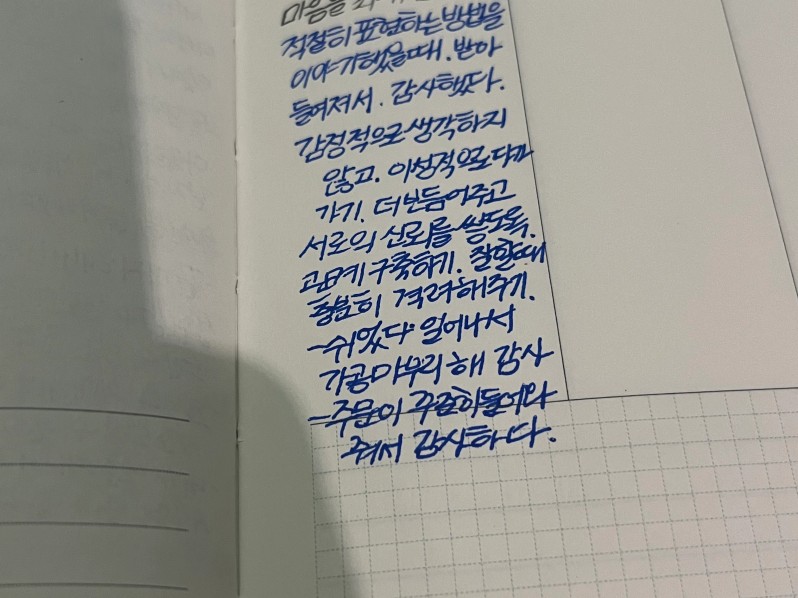 마음을
적절히 표현하는 방법을
이야기했을때. 받아
들여져서. 감사했다.
감정적으로 생각하지
않고. 이성적으로 다가
가기. 더 보듬어주고
서로의 신뢰를 쌓도록.
관계 구축하기. 잘할때
충분히 격려해주기.
-쉬었다 일어나서
가공마무리 해 감사
-주문이 꾸준히 들어와
줘서 감사하다.